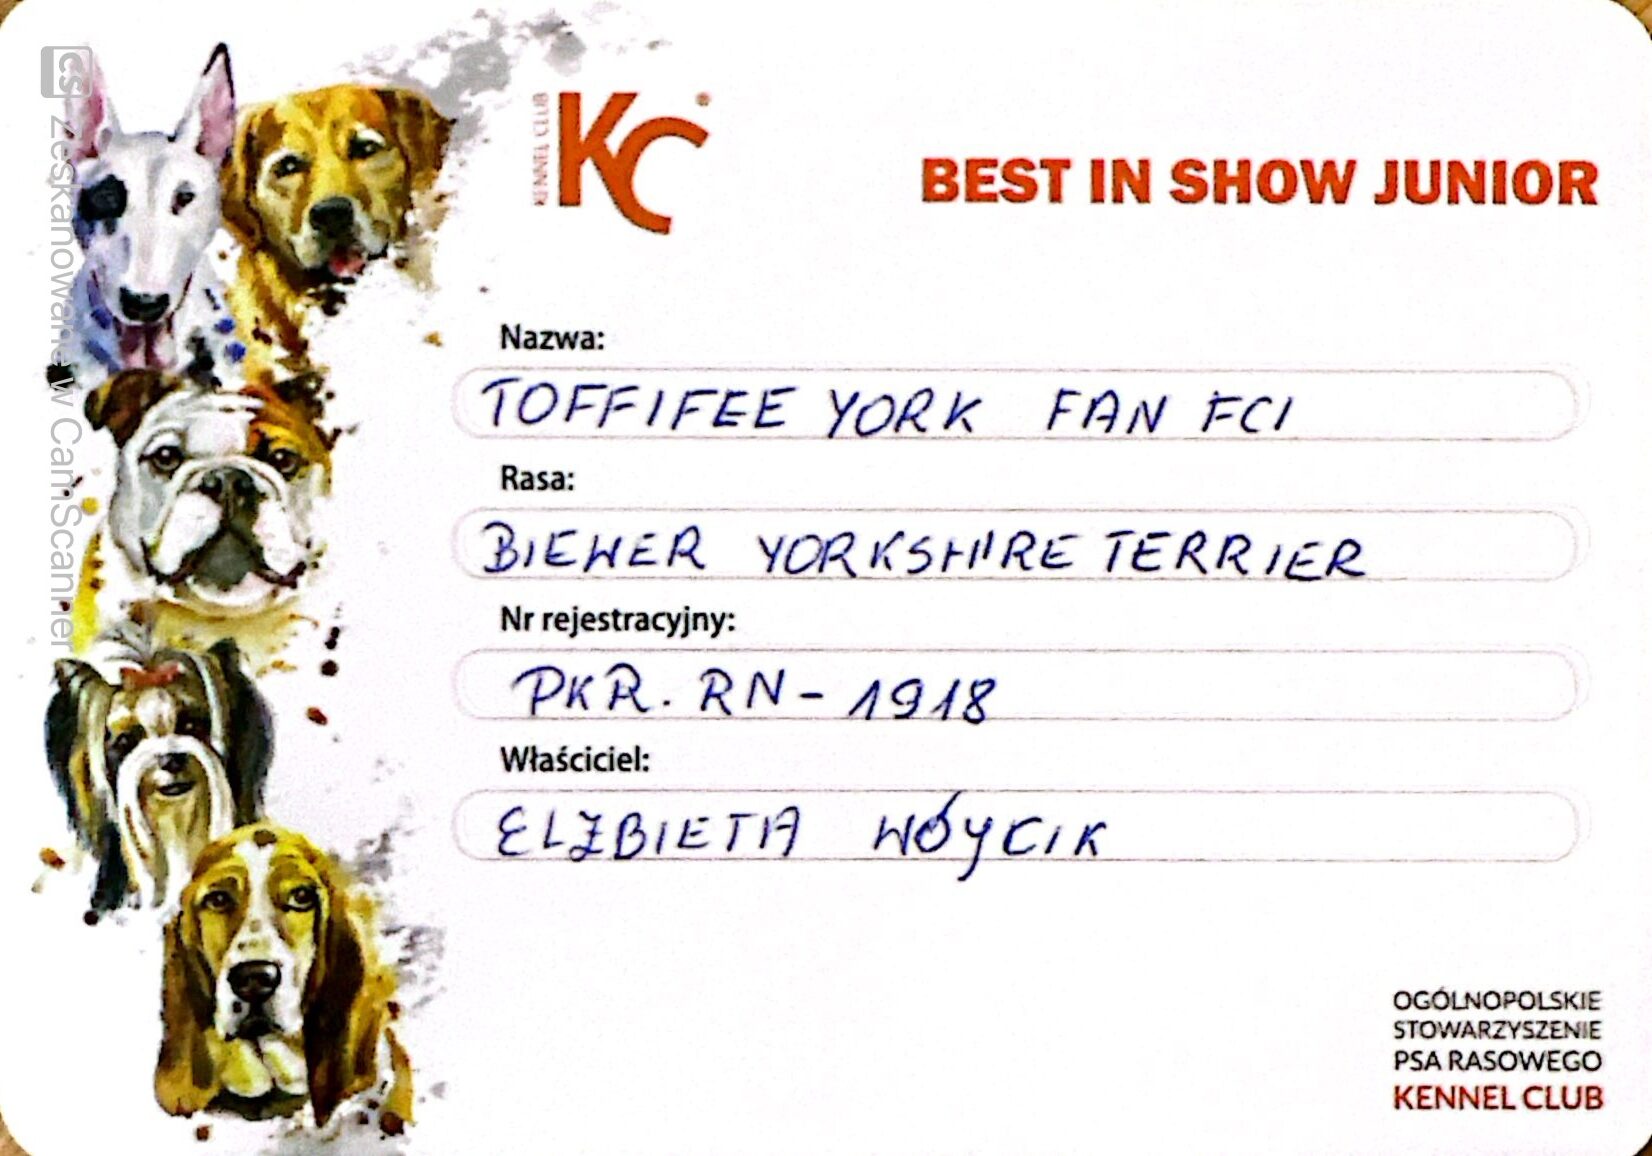 KENNEL CLUB
KC®
BEST IN SHOW JUNIOR
Nazwa:
TOFFIFEE YORK FAN FCI
Rasa:
BIEWER YORKSHIRE TERRIER
Nr rejestracyjny:
PKR. RN-1918
Właściciel:
ELŻBIETA WÓYCIK
OGÓLNOPOLSKIE
STOWARZYSZENIE
PSA RASOWEGO
KENNEL CLUB
CS Zeskanowane w CamScanner